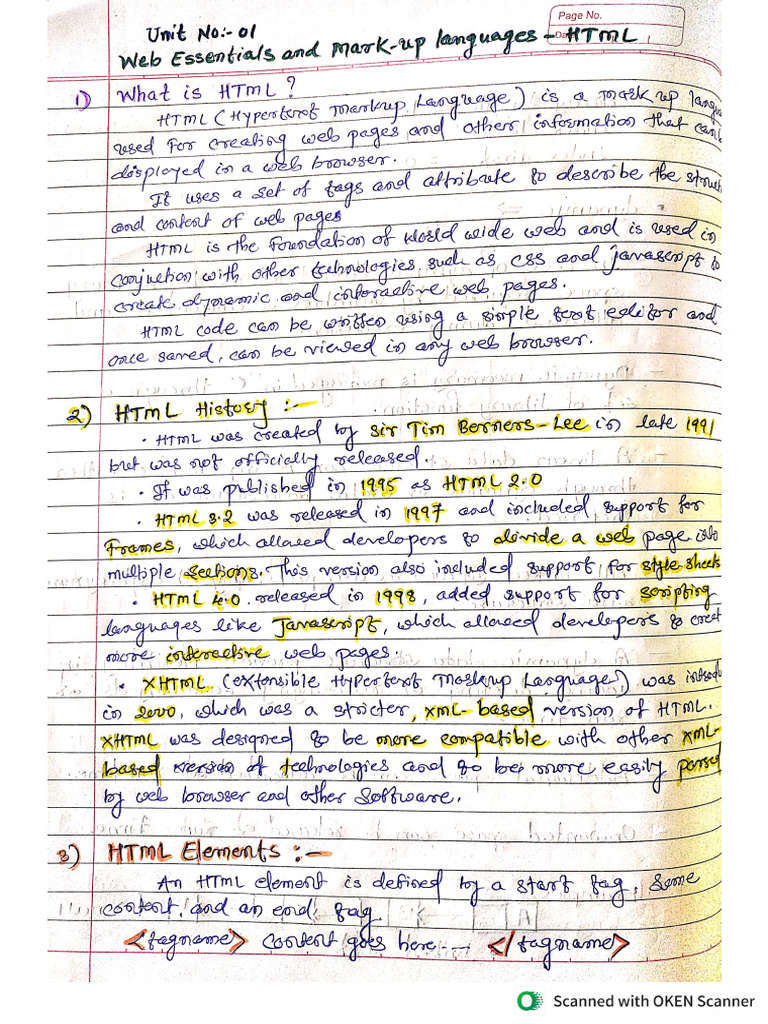 Page No.
Unit No:- 01
Web Essentials and Mark-up languages - HTML
1) What is HTML ?
HTML (Hypertext Markup Language) is a mark up
used for creating web pages and other information that can
displayed in a web browser.
It uses a set of tags and attribute to describe the
and content of web pages
HTML is the foundation of World wide web and is used in
conjuction with other technologies such as CSS and javascript to
create dynamic and interactive web pages.
HTML code can be written using a simple text editor and
once saved, can be viewed in any web browser.
2) HTML History :-
• HTML was created by Sir Tim Berners-Lee in late 1991
but was not officially released.
• It was published in 1995 as HTML 2.0
• HTML 3.2 was released in 1997 and included support for
Frames, which allowed developers to divide a web page into
multiple sections. This version also included support for style sheets
• HTML 4.0 released in 1998, added support for scripting
languages like Javascript, which allowed developers to creat
more interactive web pages.
• XHTML (extensible Hypertext Markup Language) was
in 2000, which was a stricter, XML-based version of HTML.
XHTML was designed to be more compatible with other XML-
based version of technologies and to be more easily parsed
by web browser and other software.
3) HTML Elements :-
An HTML element is defined by a start tag, some
content, and an end tag.
<tagname> content goes here --- </tagname>
Scanned with OKEN Scanner